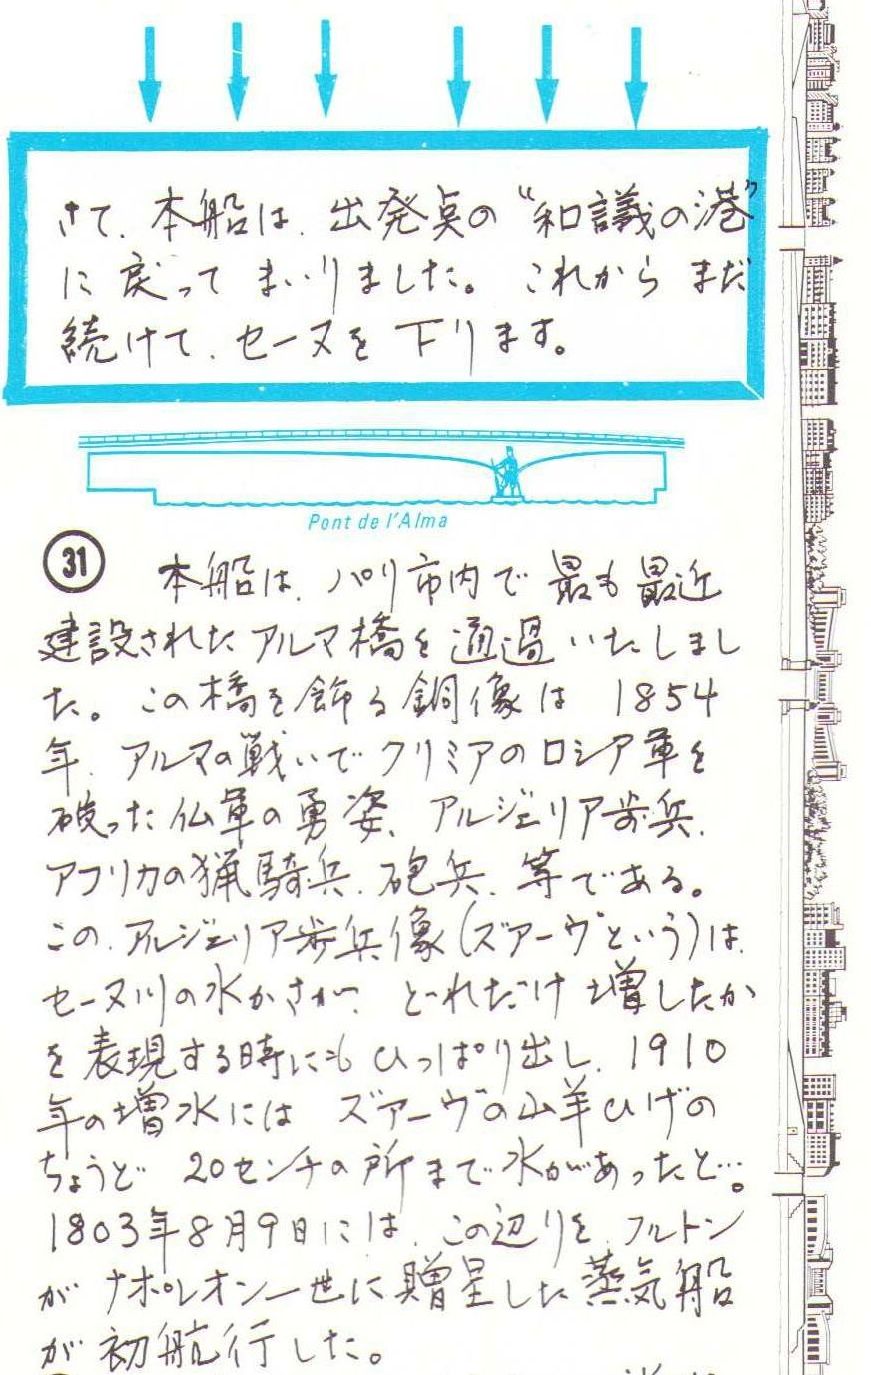 さて、本船は、出発点の“和議の港”
に戻ってまいりました。これからまだ
続けて、セーヌを下ります。
Pont de l'Alma
31
本船は、パリ市内で最も最近
建設されたアルマ橋を通過いたしまし
た。この橋を飾る銅像は1854
年、アルマの戦いでクリミアのロシア軍を
破った仏軍の勇姿、アルジェリア歩兵、
アフリカの猟騎兵、砲兵、等である。
この、アルジェリア歩兵像(ズアーヴという)は、
セーヌ川の水かさが、どれだけ増したか
を表現する時にもひっぱり出し、1910
年の増水にはズアーヴの山羊ひげの
ちょうど20センチの所まで水があったと…。
1803年8月9日には、この辺りを、フルトン
がナポレオン一世に贈呈した蒸気船
が初航行した。